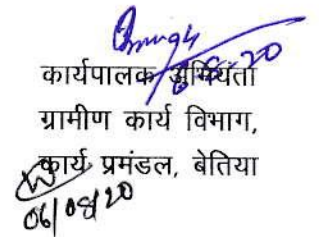 6-8-20
कार्यपालक अभियंता
ग्रामीण कार्य विभाग,
कार्य प्रमंडल, बेतिया
06/08/20